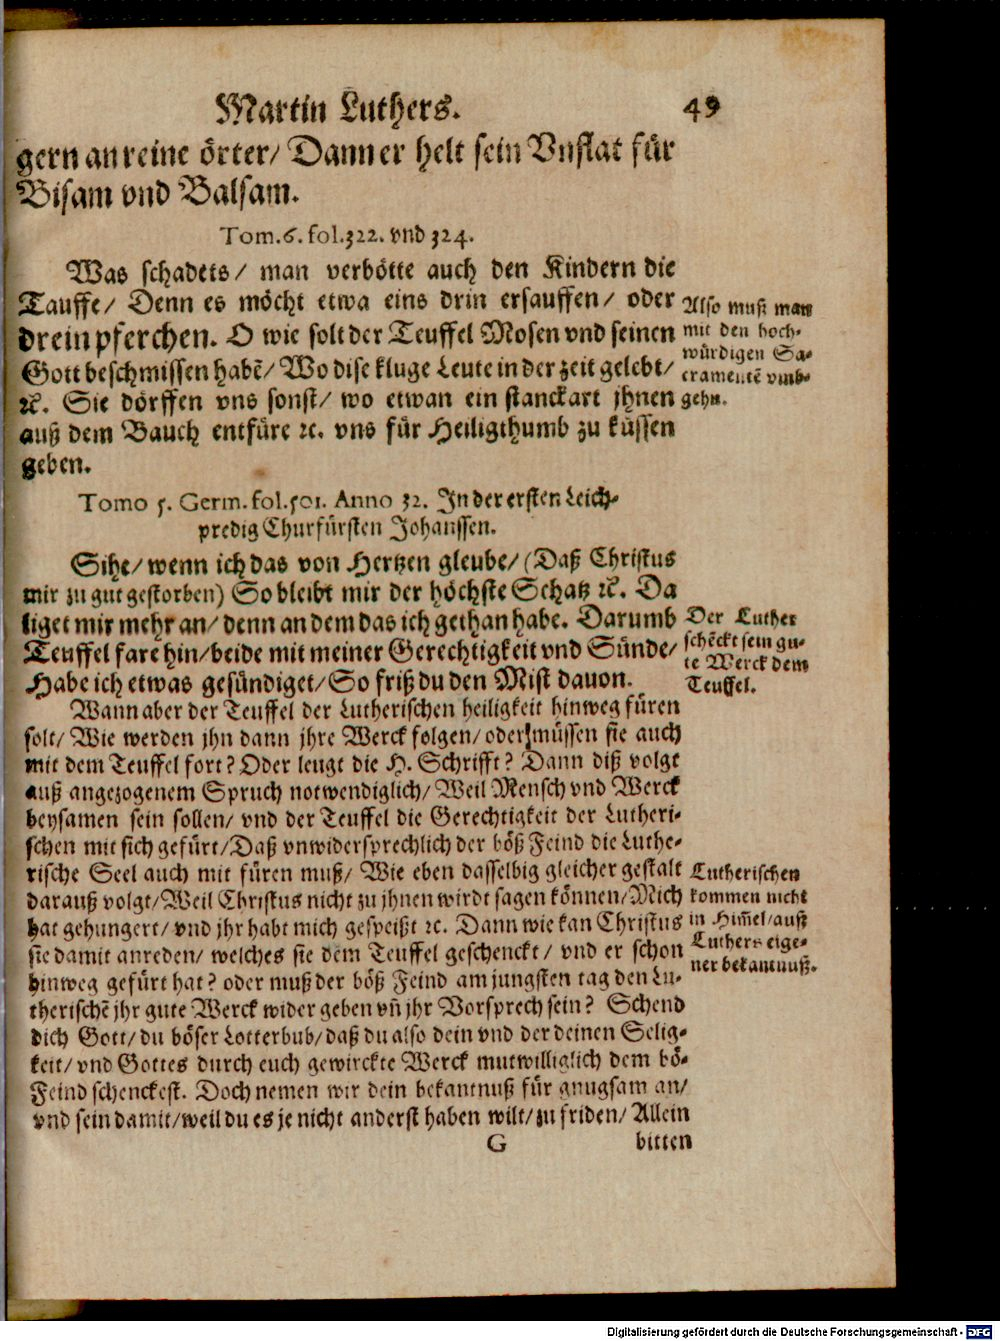 Martin Luthers. 49
gern an reine örter/ Dann er helt sein Vnflat für
Bisam vnd Balsam.
Tom.6. fol.322. vnd 324.
Was schadets/ man verbötte auch den Kindern die
Tauffe/ Denn es möcht etwa eins drin ersauffen/ oder
drein pferchen. O wie solt der Teuffel Mosen vnd seinen
Gott beschmissen habẽ/ Wo dise kluge Leute in der zeit gelebt/
ꝛc. Sie dörffen vns sonst/ wo etwan ein stanckart jhnen
auß dem Bauch entfüre ꝛc. vns für Heiligthumb zu küssen
geben.
Also muß man
mit den hoch-
würdigen Sa-
cramentẽ vmb-
gehn.
Tomo 5. Germ. fol.501. Anno 32. In der ersten Leich-
predig Churfürsten Johanssen.
Sihe/ wenn ich das von Hertzen gleube/ (Daß Christus
mir zu gut gestorben) So bleibt mir der höchste Schatz ꝛc. Da
liget mir mehr an/ denn an dem das ich gethan habe. Darumb
Teuffel fare hin/ beide mit meiner Gerechtigkeit vnd Sünde/
Habe ich etwas gesündiget/ So friß du den Mist dauon.
Der Luther
schẽckt sein gu-
te Werck dem
Teuffel.
Wann aber der Teuffel der Lutherischen heiligkeit hinweg füren
solt/ Wie werden jhn dann jhre Werck folgen/ oder müssen sie auch
mit dem Teuffel fort? Oder leugt die H. Schrifft? Dann diß volgt
auß angezogenem Spruch notwendiglich/ Weil Mensch vnd Werck
beysamen sein sollen/ vnd der Teuffel die Gerechtigkeit der Lutheri-
schen mit sich gefürt/ Daß vnwidersprechlich der böß Feind die Luthe-
rische Seel auch mit füren muß/ Wie eben dasselbig gleicher gestalt
darauß volgt/ Weil Christus nicht zu jhnen wirdt sagen können/ Mich
hat gehungert/ vnd jhr habt mich gespeißt ꝛc. Dann wie kan Christus
sie damit anreden/ welches sie dem Teuffel geschenckt/ vnd er schon
hinweg gefürt hat? oder muß der böß Feind am jungsten tag den Lu-
therischẽ jhr gute Werck wider geben vñ jhr Vorsprech sein? Schend
dich Gott/ du böser Lotterbub/ daß du also dein vnd der deinen Selig-
keit/ vnd Gottes durch euch gewirckte Werck mutwilliglich dem bö-
Feind schenckest. Doch nemen wir dein bekantnuß für gnugsam an/
vnd sein damit/ weil du es je nicht anderst haben wilt/ zu friden/ Allein
Lutherischen
kommen nicht
in Him̃el/ auß
Luthers eige-
ner bekantnuß.
G bitten
Digitalisierung gefördert durch die Deutsche Forschungsgemeinschaft - DFG